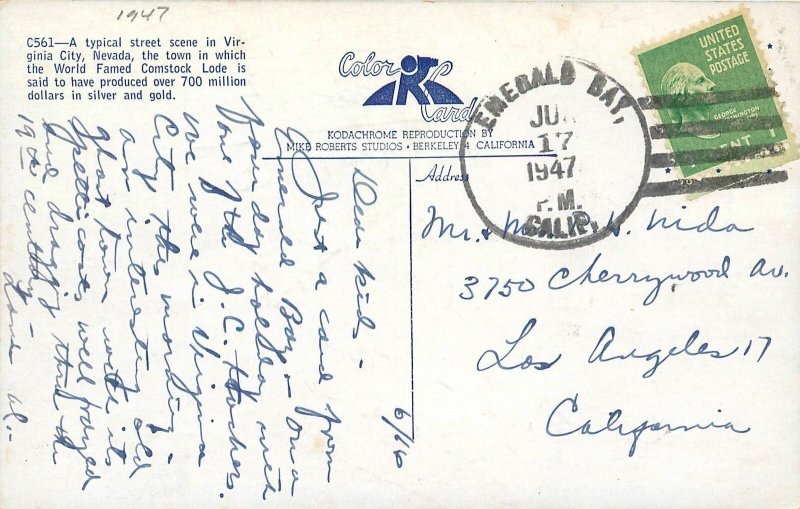 1947
C561—A typical street scene in Vir-
ginia City, Nevada, the town in which
the World Famed Comstock Lode is
said to have produced over 700 million
dollars in silver and gold.
Color
Card
KODACHROME REPRODUCTION BY
MIKE ROBERTS STUDIOS · BERKELEY 4 CALIFORNIA
UNITED
STATES
POSTAGE
GEORGE
WASHINGTON
CENT 1
EMERALD BAY,
JUN
17
1947
P.M.
CALIF.
Address
Mr. & M H. Nida
3750 Cherrywood Av.
Los Angeles 17
California
6/16
Dear kids –
Just a card from
Emerald Bay – on a
four day holiday with
the J.C.
We were in Virginia
City this morning –
an interesting old
ghost town with its
petticoats well frayed
and dragging thru the
19th century –
Love Al –